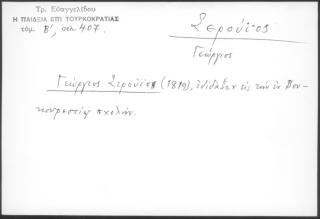 Τρ. Εὐαγγελίδου
Η ΠΑΙΔΕΙΑ ΕΠΙ ΤΟΥΡΚΟΚΡΑΤΙΑΣ
τόμ. Β', σελ. 407.
Σερούϊος
Γεώργιος
Γεώργιος Σερούϊος (1819), ἐδίδαξεν εἰς τὴν ἐν Βου-
κουρεστίῳ σχολήν.